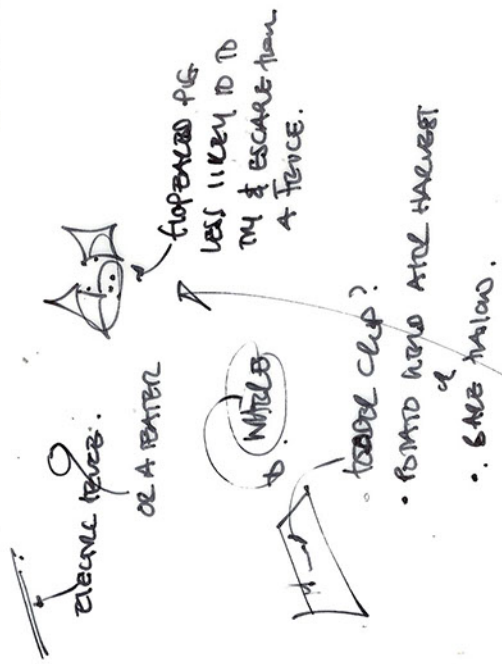 ELECTRIC FENCE.
OR A
FLOPEARED PIG
LESS LIKELY TO TO
TRY & ESCAPE from
A FENCE.
WHERE
FODDER CROP?
• POTATO FIELD AFTER HARVEST
or
• BARE FALLOW.